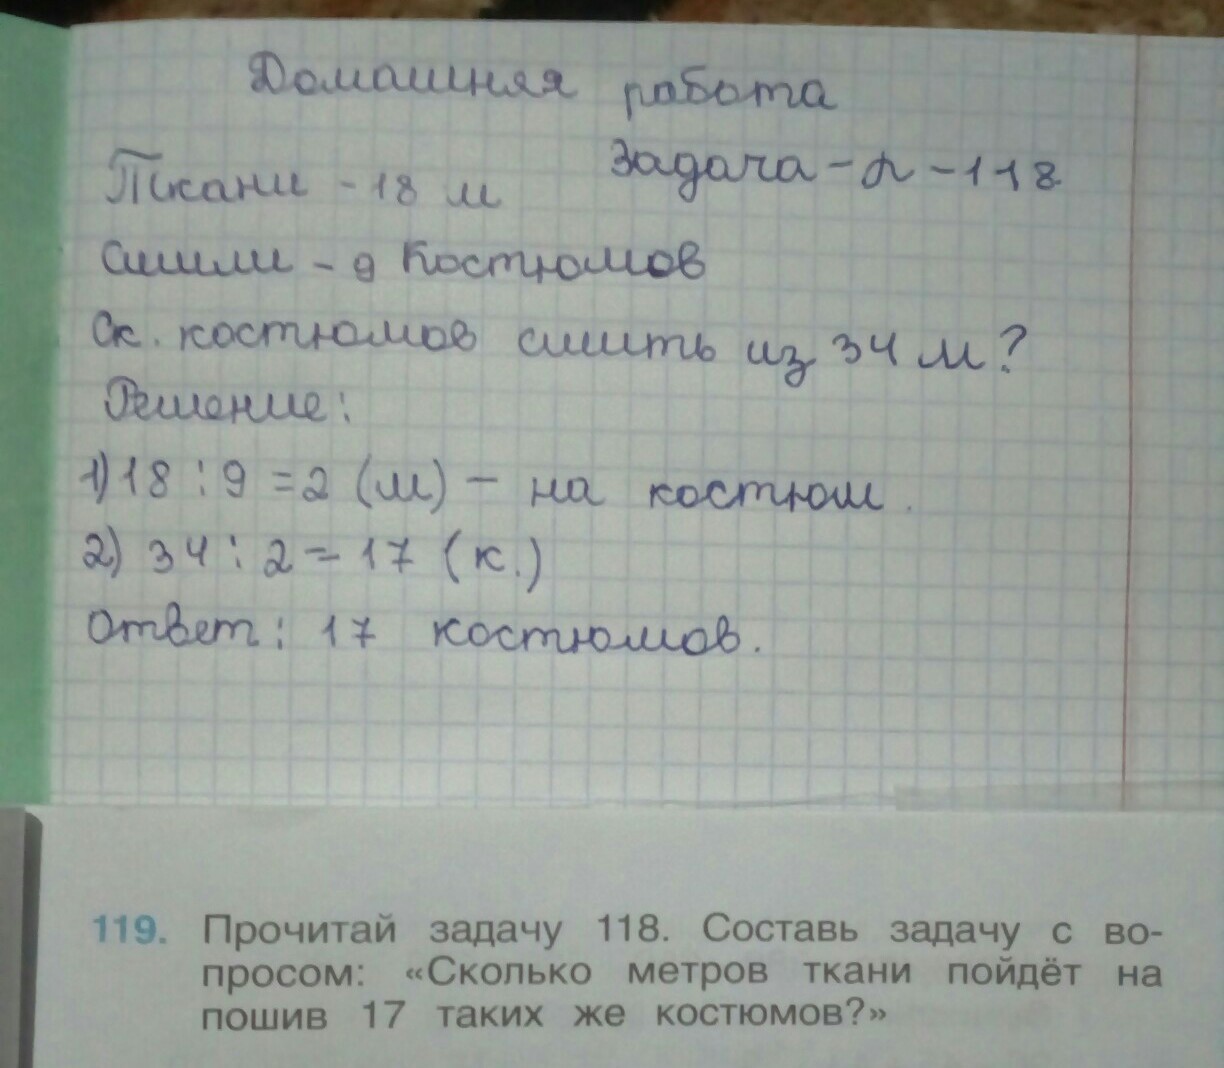 Домашняя работа
Задача - л - 118
Ткани - 18 м
Сшили - 9 Костюмов
Ск. костюмов сшить из 34 м?
Решение:
1) 18 : 9 = 2 (м) - на костюм.
2) 34 : 2 = 17 (к.)
Ответ: 17 костюмов.
119. Прочитай задачу 118. Составь задачу с во-
просом: «Сколько метров ткани пойдёт на
пошив 17 таких же костюмов?»